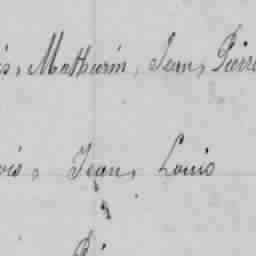 is, Mathurin, Jean, Pierre
ois, Jean, Louis